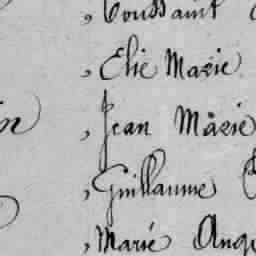 , Toussaint
, Elie Marie
, Jean Marie
, Guillaume
, Marie Ange